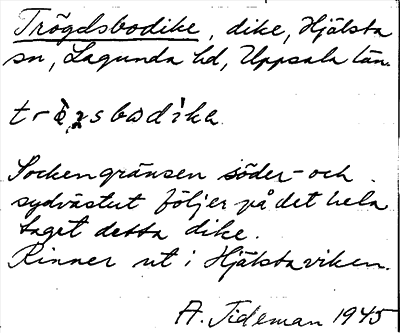 Trögdsbodike, dike, Hjälsta
sn, Lagunda hd, Uppsala län.
Sockengränsen söder- och
sydvästut följer på det hela
taget detta dike.
Rinner ut i Hjälstaviken.
A. Tideman 1945